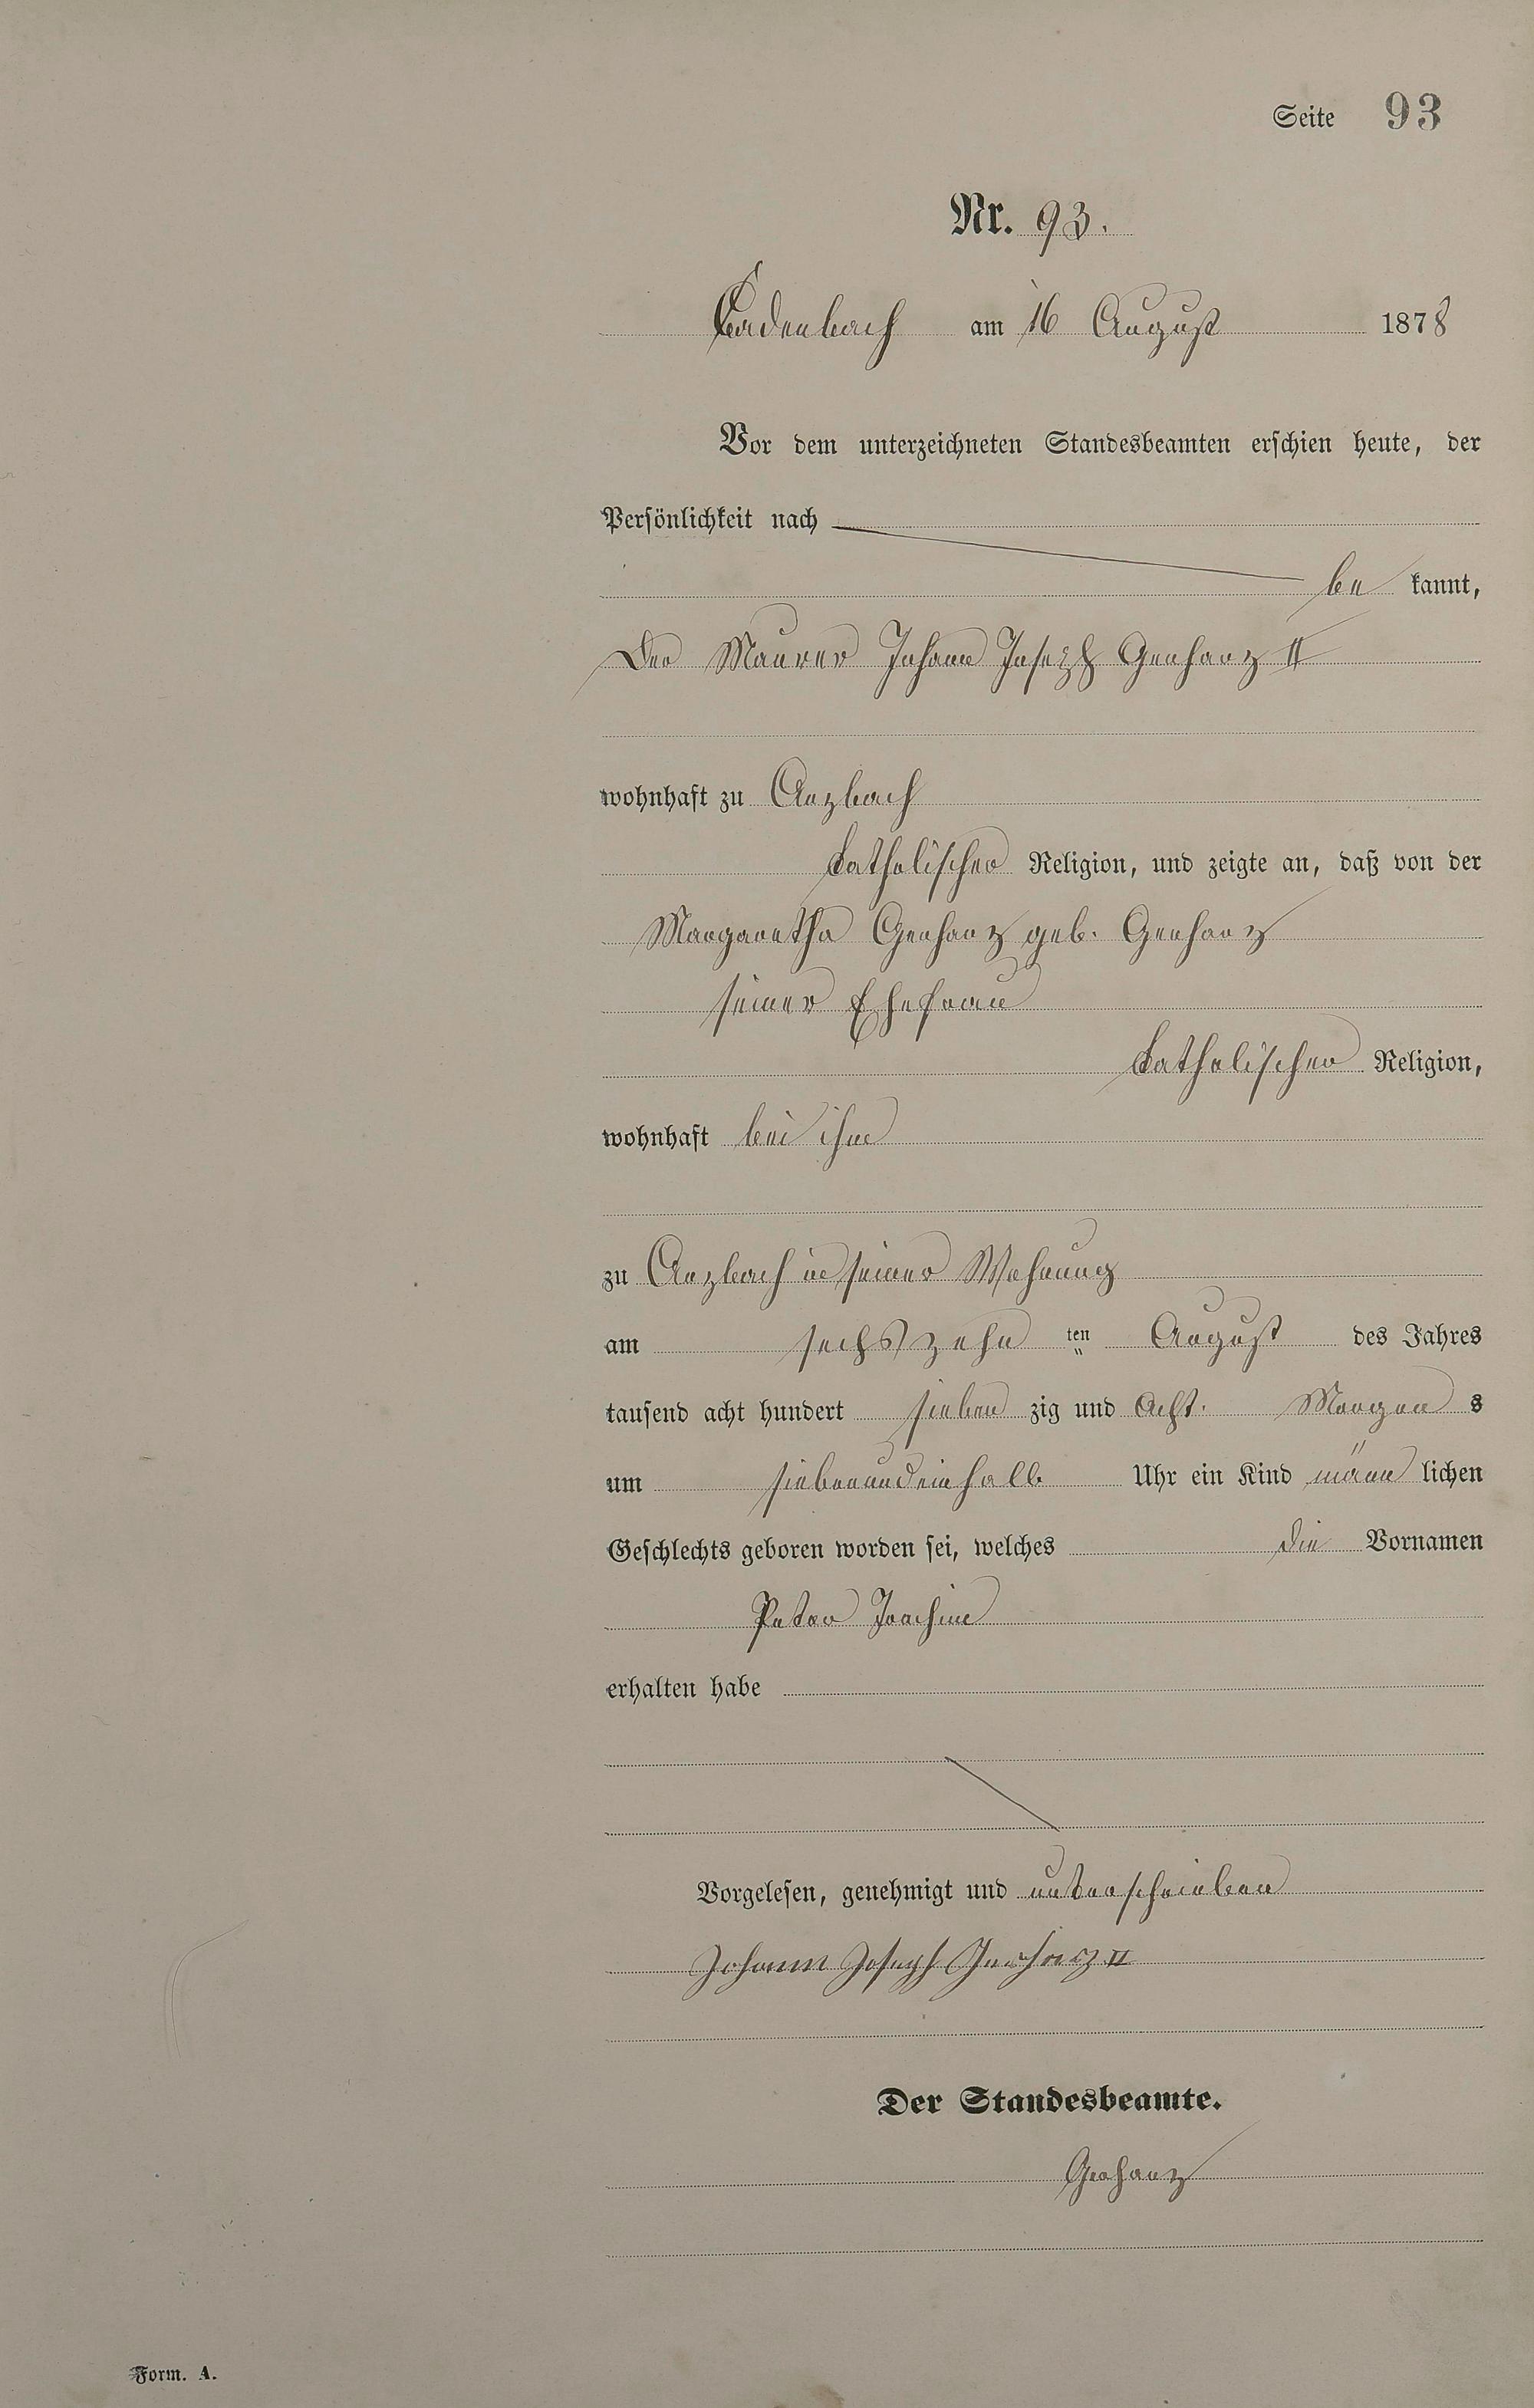 Seite 93
Nr. 93.
Cadenbach am 16 August 1878
Vor dem unterzeichneten Standesbeamten erschien heute, der
Persönlichkeit nach
be kannt,
Der Maurer Johann Joseph Gerharz II
wohnhaft zu Arzbach
katholischer Religion, und zeigte an, daß von der
Margaretha Gerharz geb. Gerharz
seiner Ehefrau
katholischer Religion,
wohnhaft bei ihm
zu Arzbach in seiner Wohnung
am sechszehn ten August des Jahres
tausend acht hundert sieben zig und Acht. Morgen s
um siebenundeinhalb Uhr ein Kind männ lichen
Geschlechts geboren worden sei, welches die Vornamen
Peter Joachim
erhalten habe
Vorgelesen, genehmigt und unterschrieben
Johann Joseph Gerharz II
Der Standesbeamte.
Gerharz
Form. A.